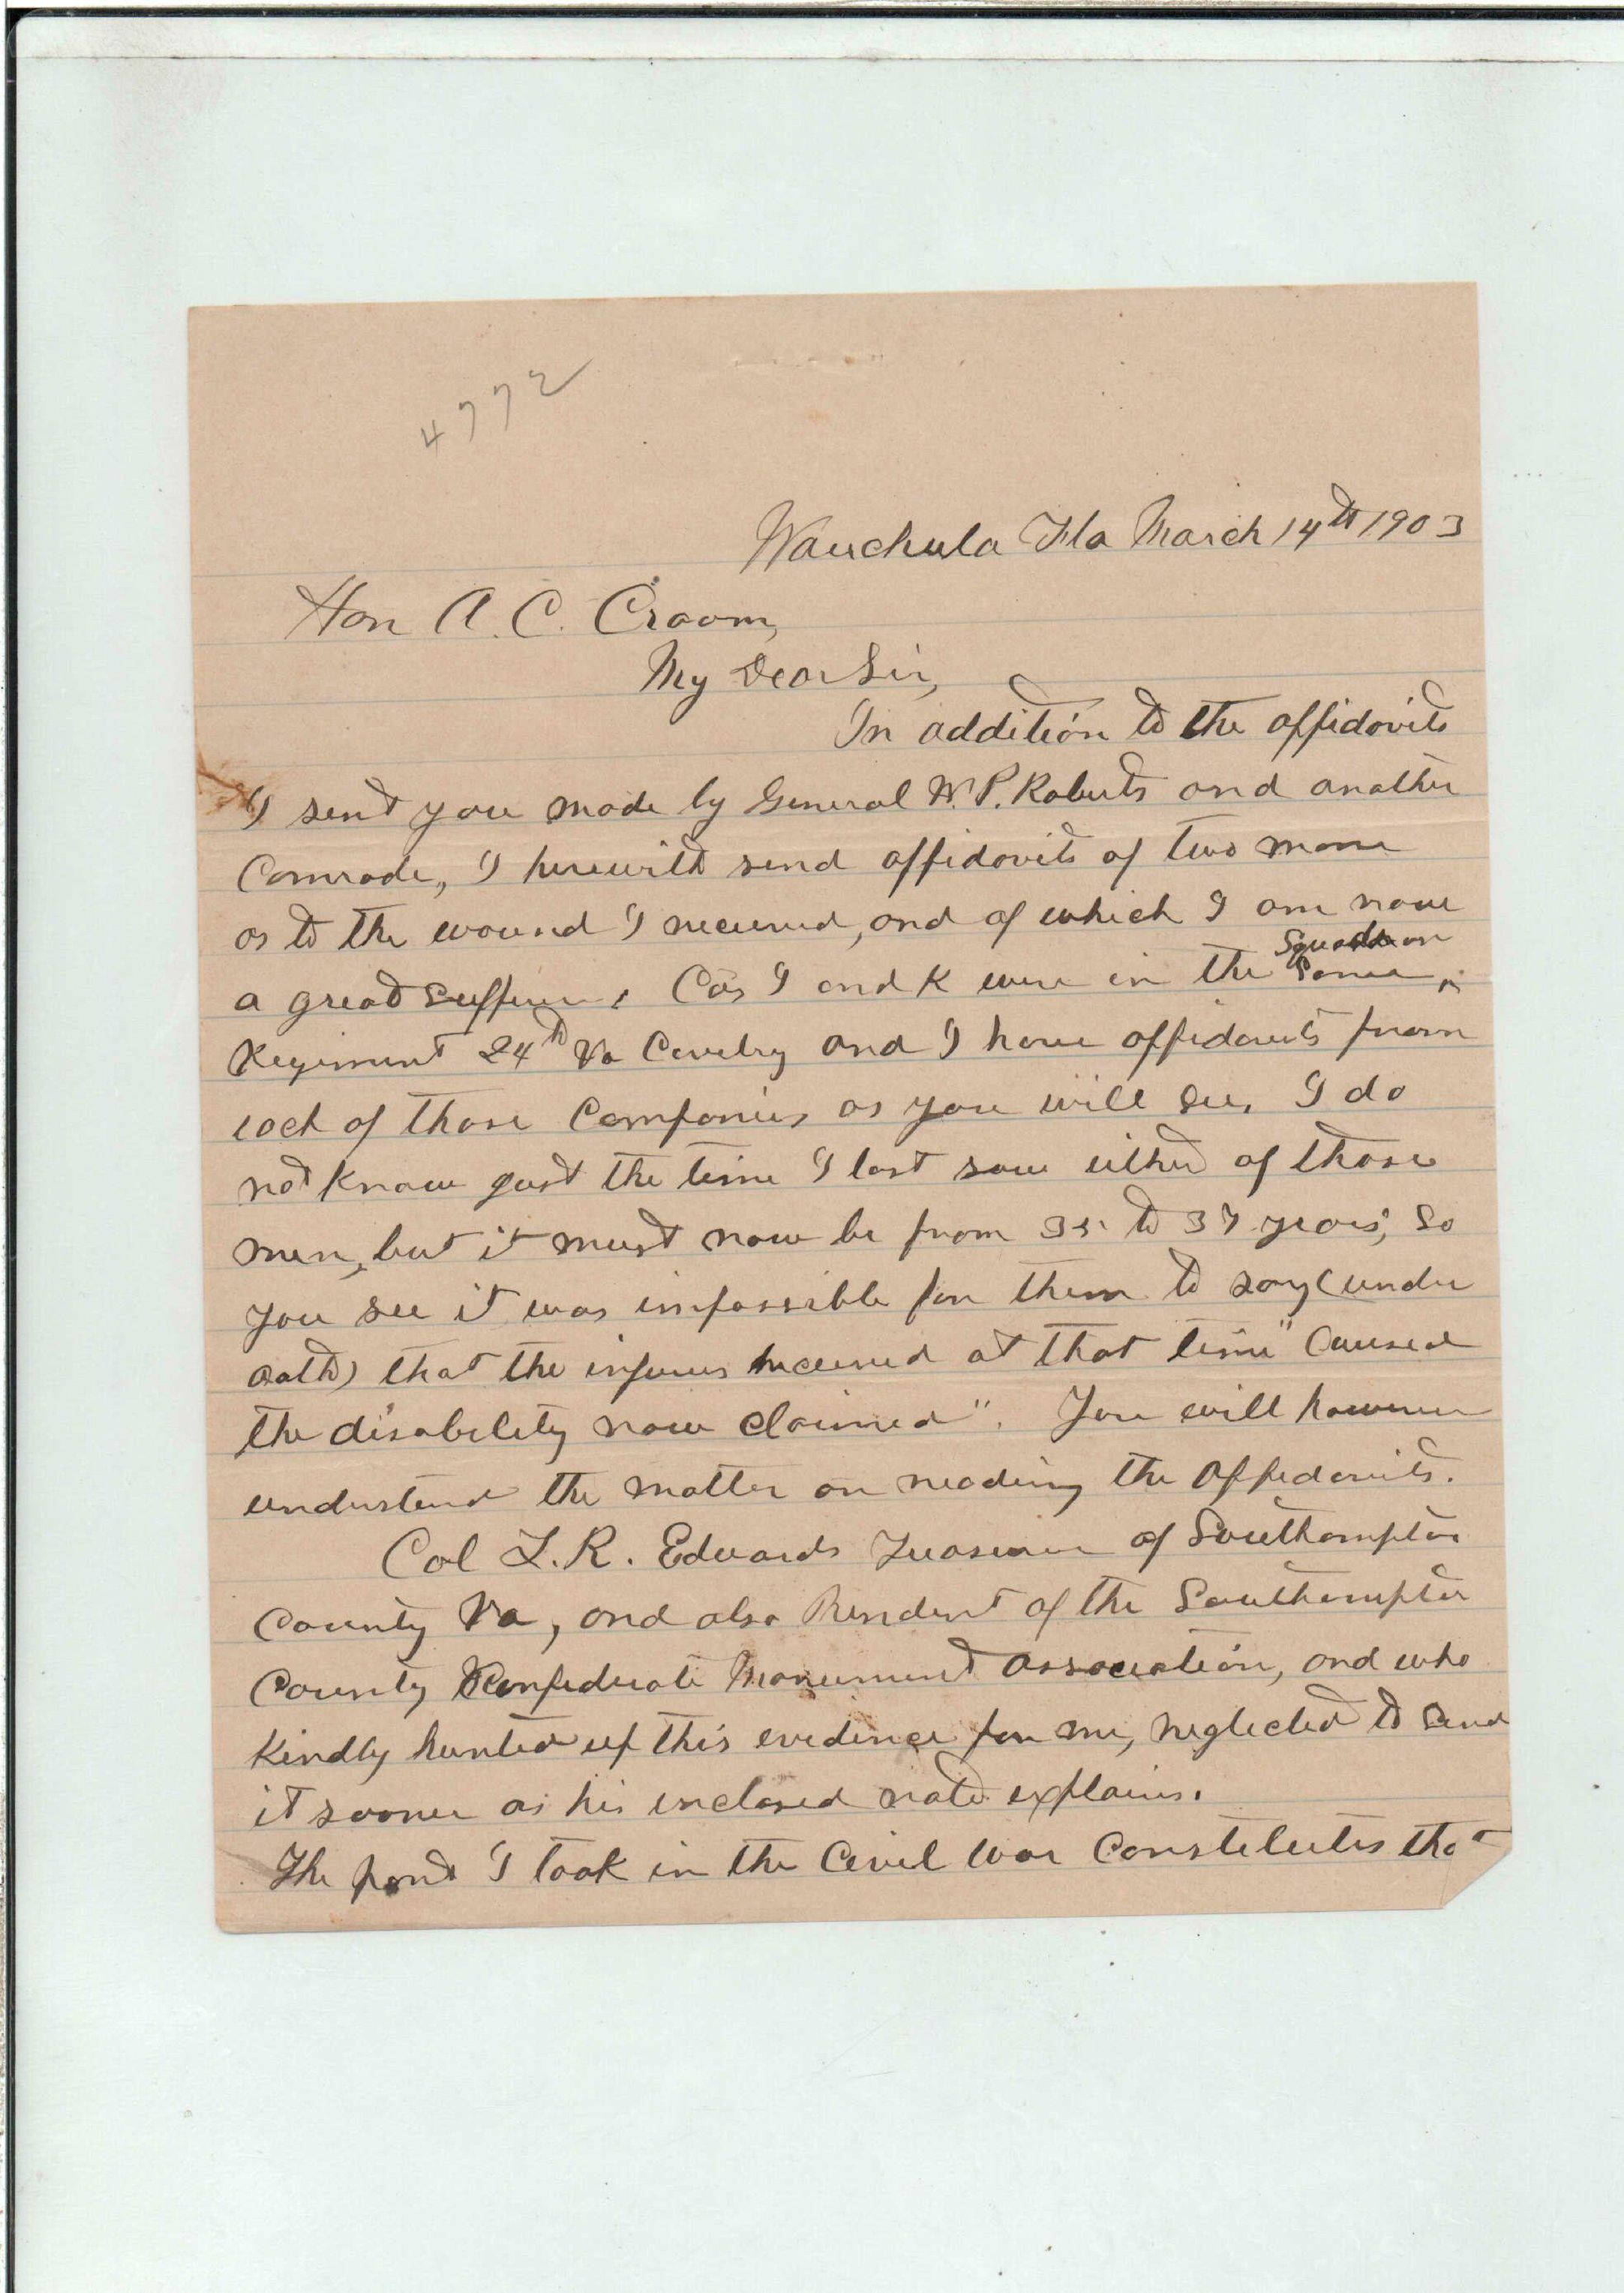 4772
Wauchula Fla March 14th 1903
Hon A. C. Croom,
My Dear Sir,
In addition to the affidavits
I sent you made by General W. P. Roberts and another
Comrade, I herewith send affidavits of two more
as to the wound I received, and of which I am now
a great sufferer. Cos I and K were in the same Squadron
Regiment 24th Va Cavelry and I have affidavits from
each of those Companies as you will see. I do
not know just the time I last saw either of those
men, but it must now be from 35 to 37 years, so
you see it was impossible for them to say (under
oath) that the injuries received at that time "caused
the disability now claimed". You will however
understand the matter on reading the affidavits.
Col L. R. Edwards Treasurer of Southampton
County Va, and also President of the Southampton
County Confederate Monument Association, and who
kindly hunted up this evidence for me, neglected to send
it sooner as his enclosed note explains.
The part I took in the Civil War Constitutes that